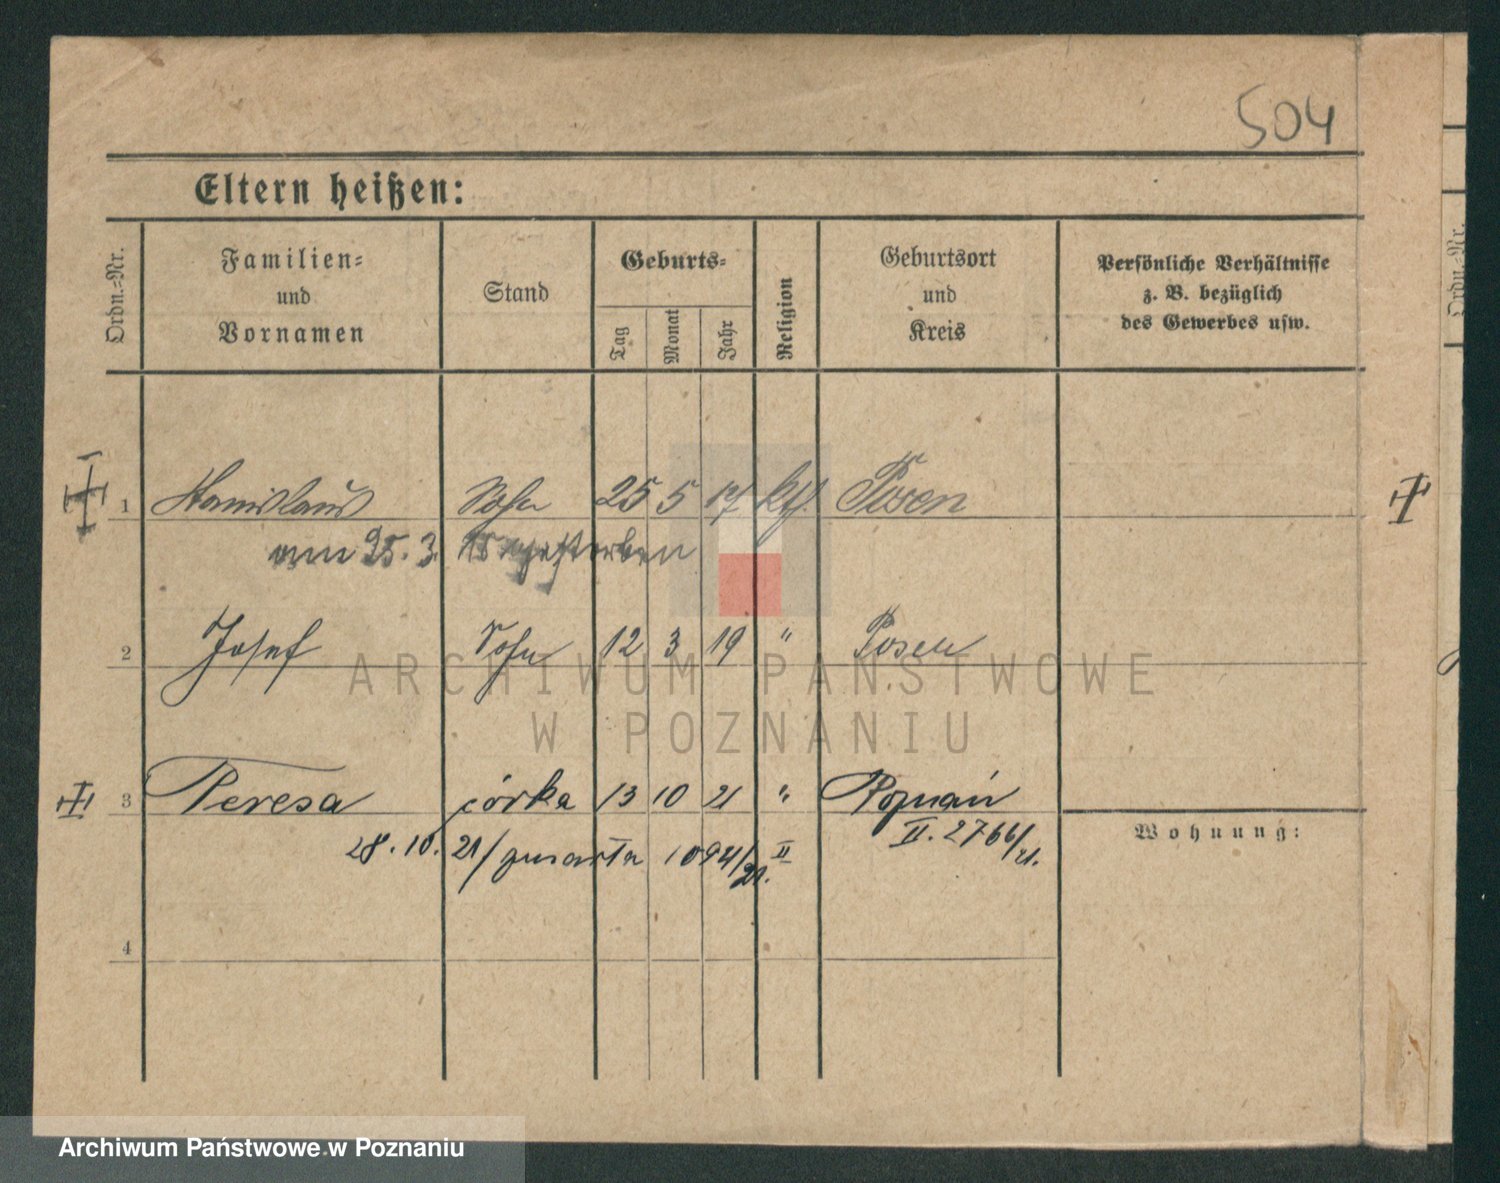 504
Eltern heißen:
Ordn.-Nr.
Familien- und Vornamen
Stand
Geburts-
Tag
Monat
Jahr
Religion
Geburtsort und Kreis
Persönliche Verhältnisse z. B. bezüglich des Gewerbes usw.
Ordn.-Nr.
1 Stanislaus Sohn 25 5 17 kth. Posen
am 25. 3. gestorben
2 Josef Sohn 12 3 19 " Posen
3 Teresa córka 13 10 21 " Poznań
II. 2766/21.
28. 10. 21/ zmarła 1094/21. II
Wohnung:
4
ARCHIWUM PAŃSTWOWE
W POZNANIU
Archiwum Państwowe w Poznaniu